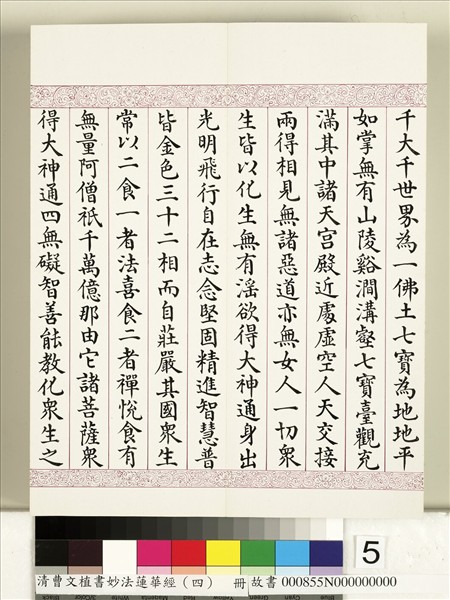 千大千世界為一佛土七寶為地地平
如掌無有山陵谿澗溝壑七寶臺觀充
滿其中諸天宮殿近處虛空人天交接
兩得相見無諸惡道亦無女人一切衆
生皆以化生無有淫欲得大神通身出
光明飛行自在志念堅固精進智慧普
皆金色三十二相而自莊嚴其國衆生
常以二食一者法喜食二者禪悅食有
無量阿僧祇千萬億那由它諸菩薩衆
得大神通四無礙智善能教化衆生之
5
清曹文植書妙法蓮華經（四） 冊 故書 000855N000000000